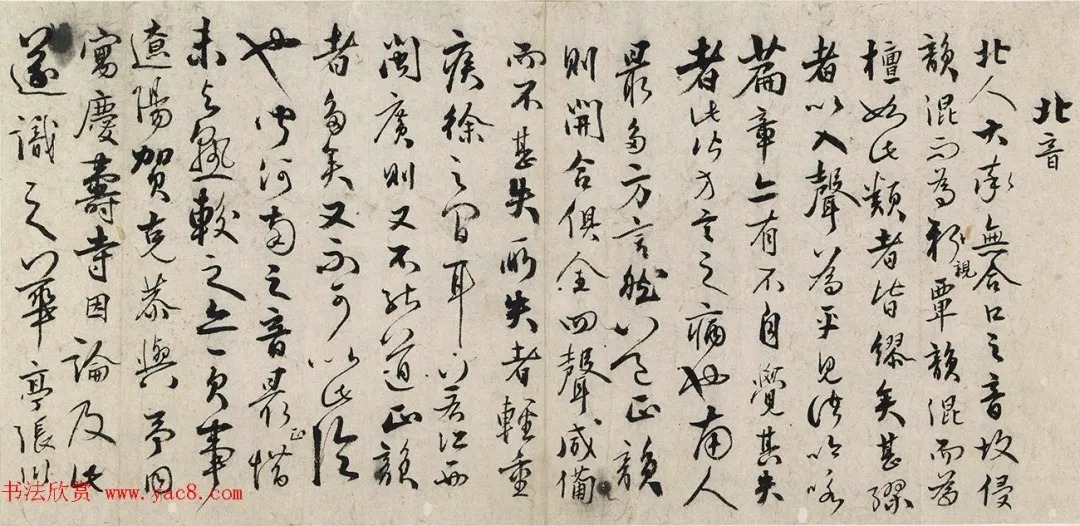 北音
北人大率無合口之音故侵
韻混而為親覃韻混而為
檀如此類者皆繆矣甚繆
者以入聲為平見諸吟咏
篇章亦有不自覺其失
者此皆方言之病也南人
最多方言然以之正韻
則開合俱全四聲咸備
而不甚失所失者輕重
疾徐之間耳以若江西
閩廣則又不能道正韻
者多矣又不可以此論
也中河南之音最正惜
未與熟較之亦一欠事
遼陽賀克恭與予同
寓慶壽寺因論及此
遂識之以華亭張
书法欣赏 www.yac8.com